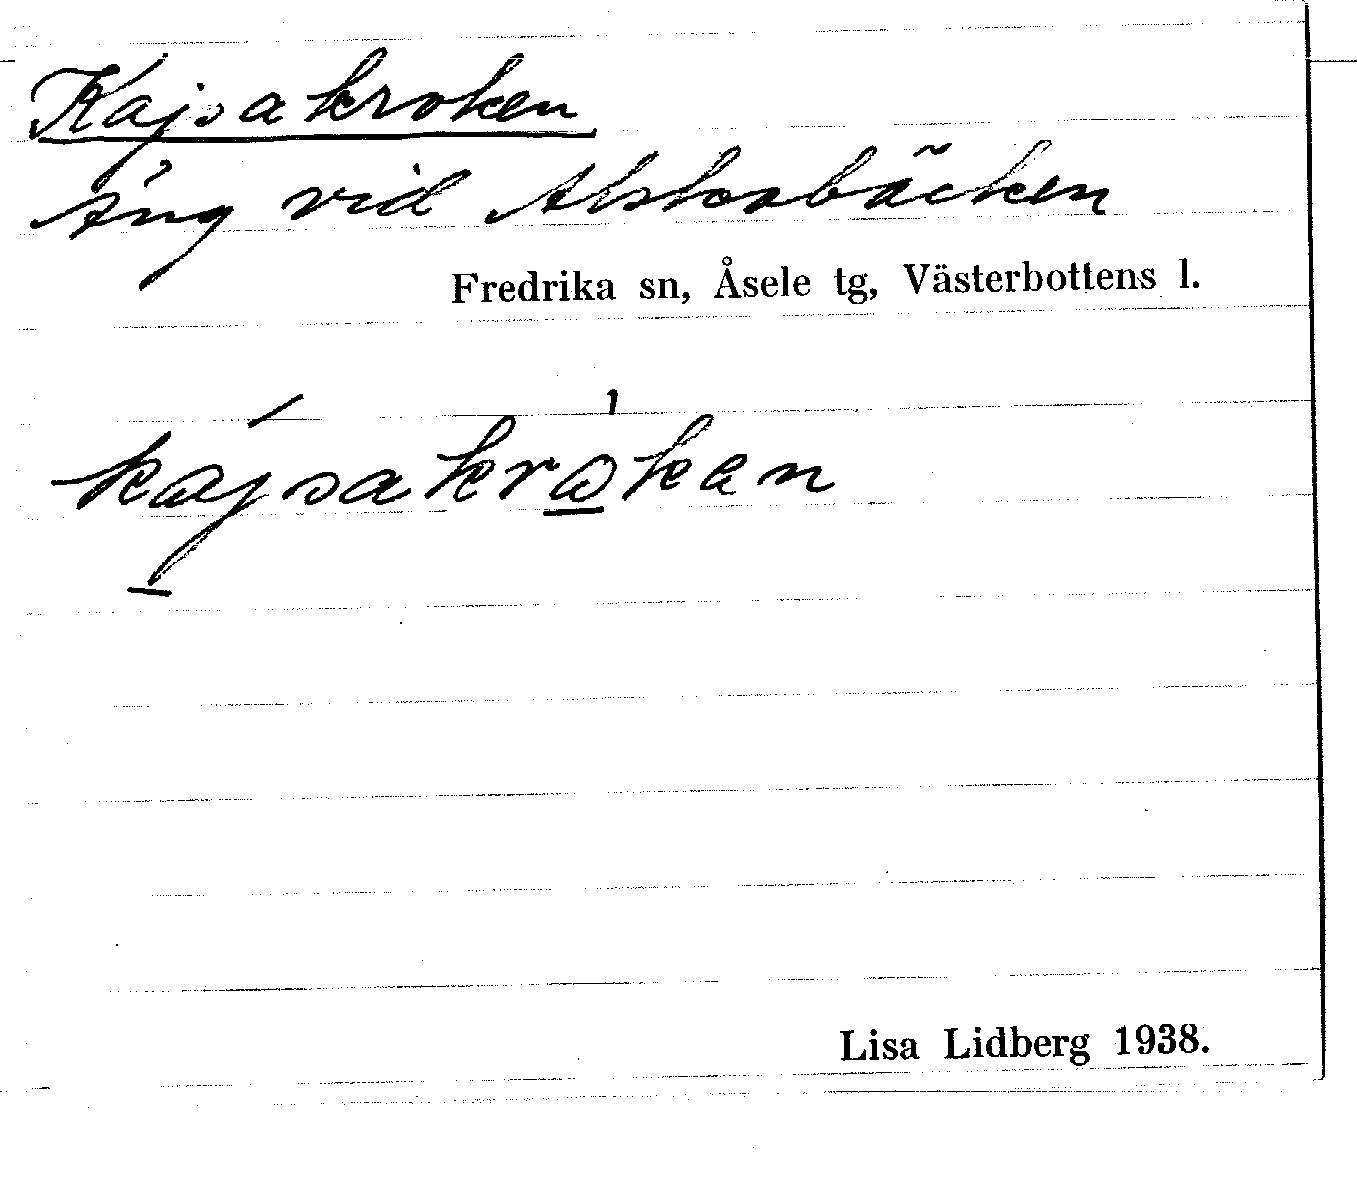 Kajsakroken
Äng vid Alskabäcken
Fredrika sn, Åsele tg, Västerbottens l.
kájsakrò̲ken
Lisa Lidberg 1938.